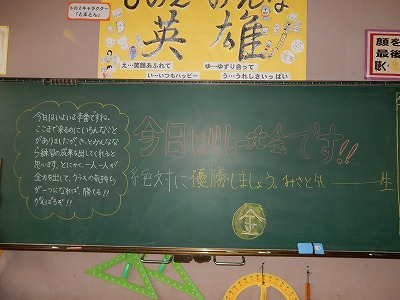 6の2キャラクター
「とまとん」
英雄
え…笑顔あふれて
い…いつもハッピー
ゆ…ゆずり合って
う…うれしさいっぱい
顔を
最後
聴く
今日はいよいよ本番ですね。
ここまで来るのにいろんなこと
がありましたが、きっとみんななら
練習の成果を出してくれると
思います。とにかく一人一人が
全力を出して、クラスの気持ち
が一つになれば、勝てる!!
がんばろう!!
今日は
会です!!
絶対に優勝しましょう。
金